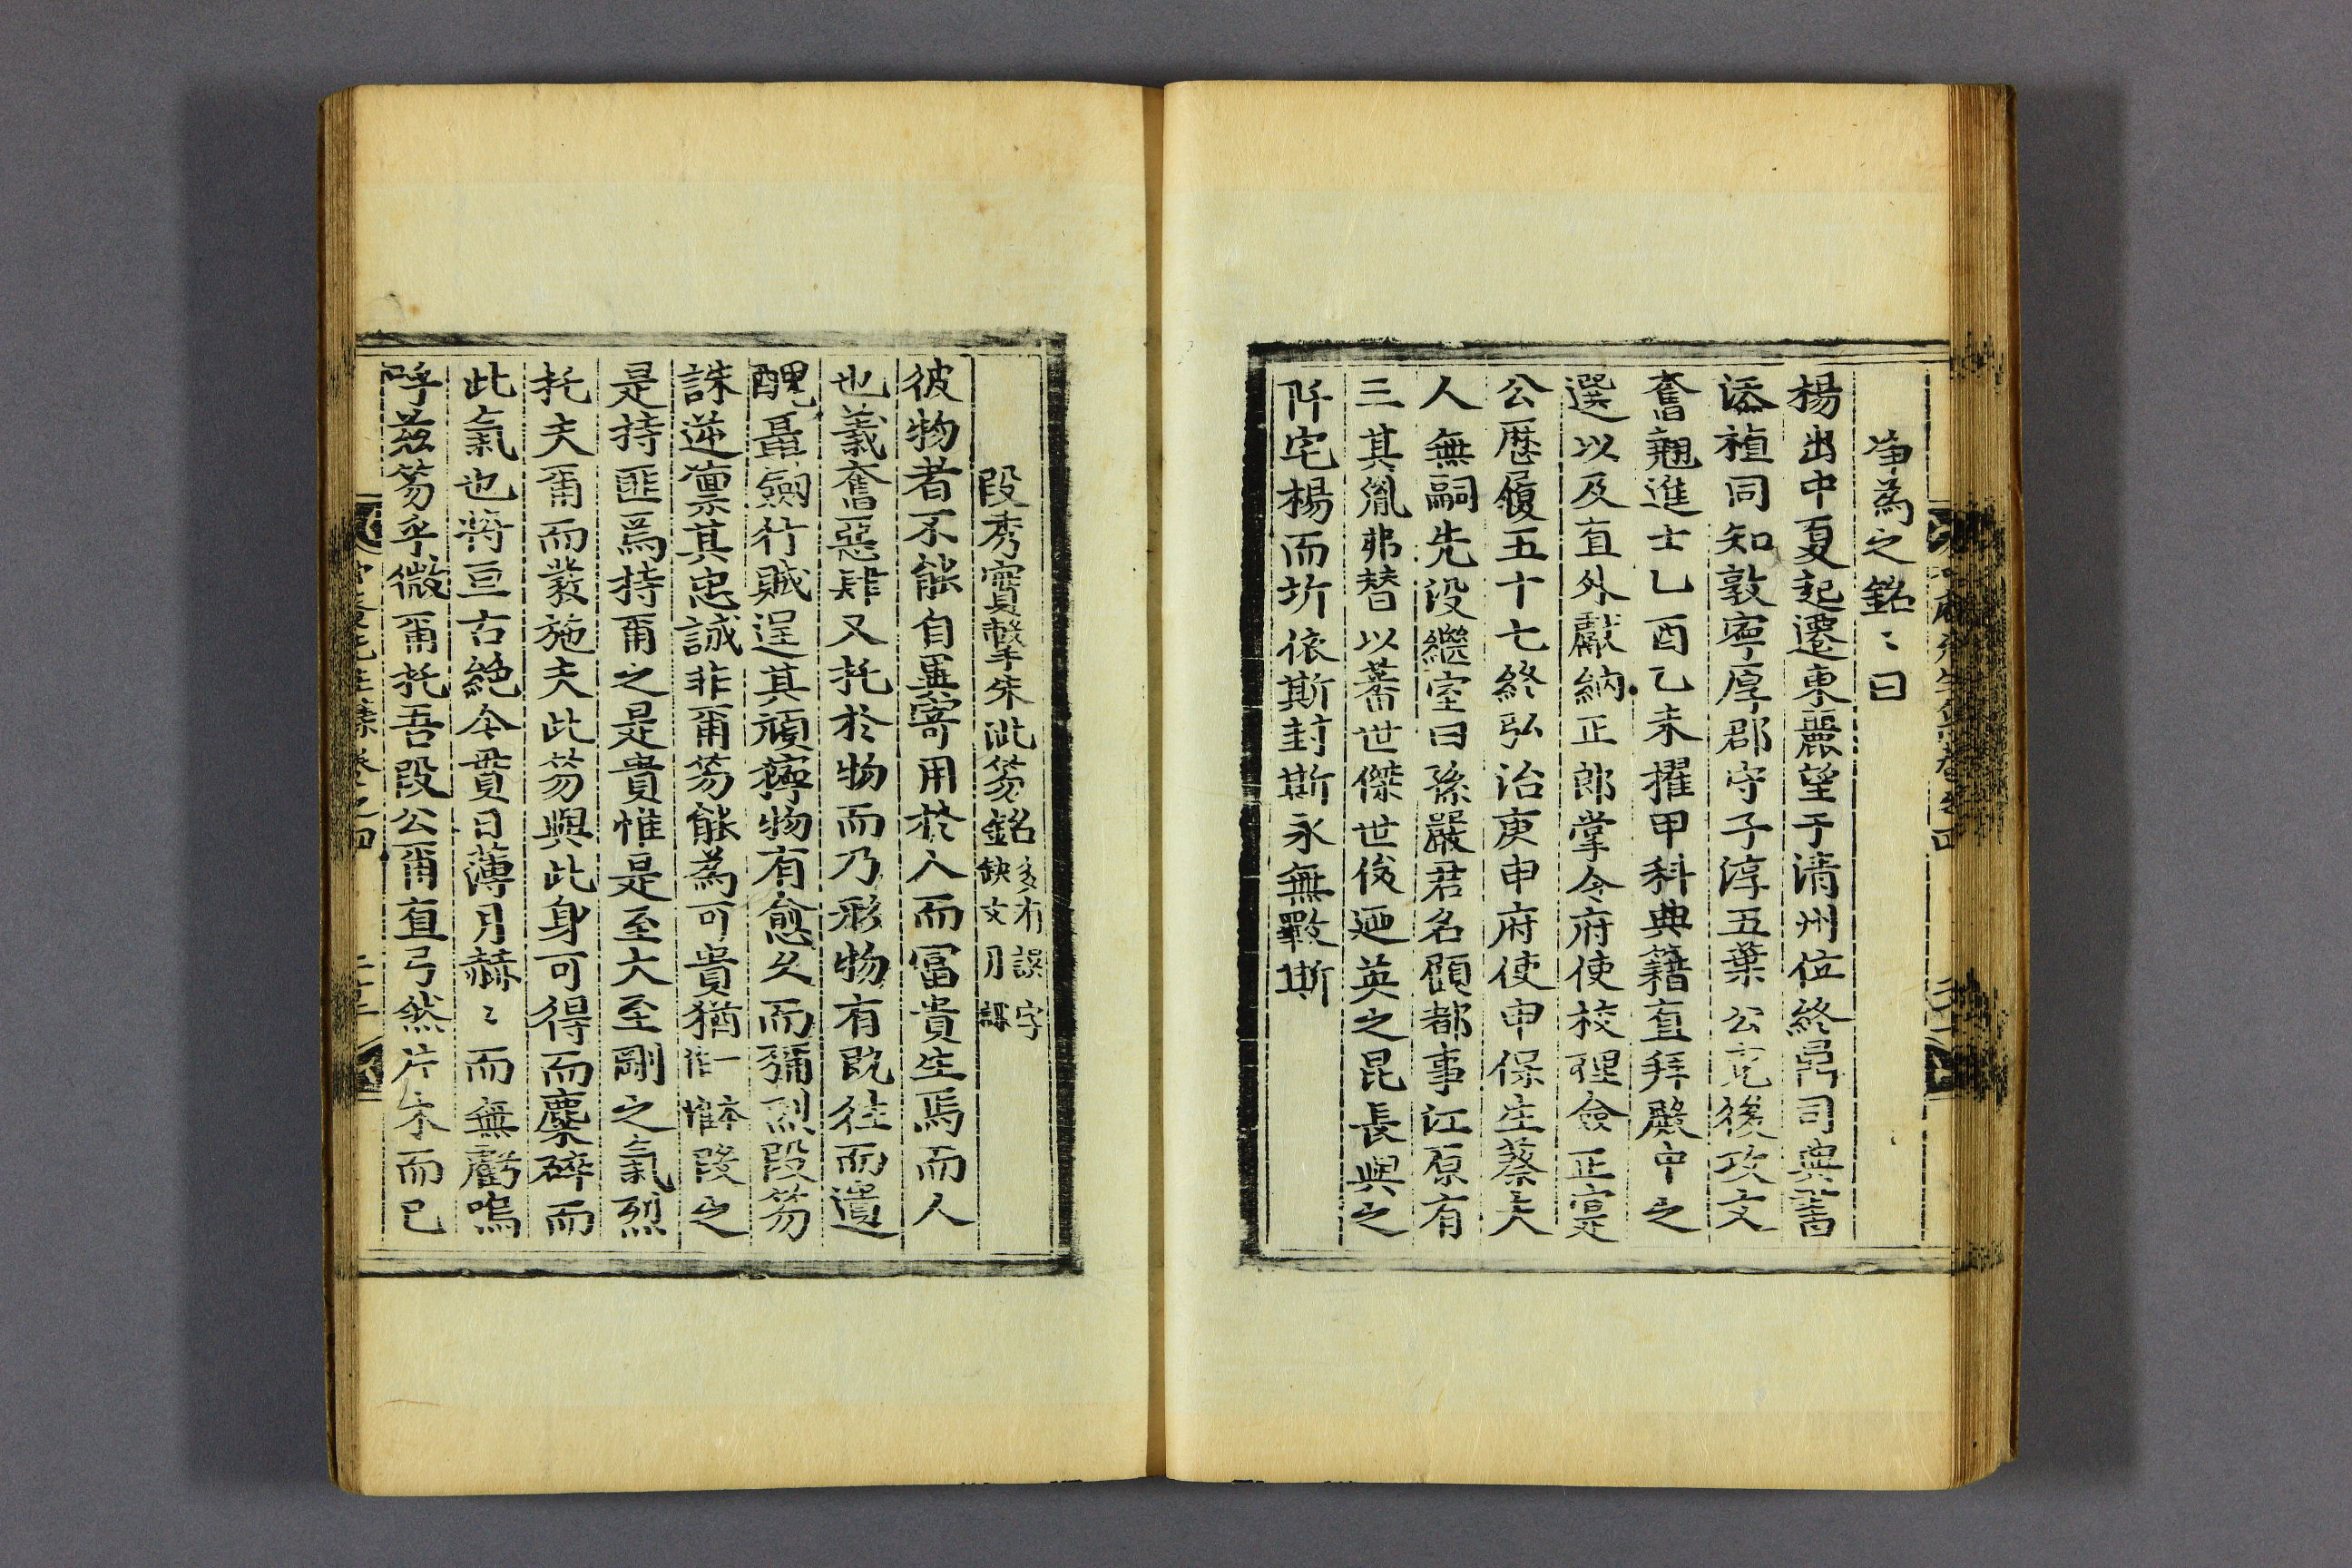 净為之銘〻曰
楊出中夏起遷東麗望于清州位終司典書
添植同知敦寧厚郡守子淳五葉公克後攻文
奮翹進士乙酉乙未擢甲科典籍直拜殿中之
選以及直外獻納正郎掌令府使校理僉正寔
公歷履五十七終弘治庚申府使申保生蔡夫
人無嗣先没繼室曰孫嚴君名頤都事江原有
三其胤弗替以蓄世傑世俊廼英之昆長與之
阡宅楊而圻依斯封斯永無斁斯
段秀實擊朱泚笏銘多有誤字缺文
彼物者不能自畢寄用於人而富貴生焉而人
也義奮惡肆又托於物而乃彩物有旣往而遺
醜畺劒行賊逞其頑㝈物有愈久而彌烈段笏
誅逆凛其忠誠非爾笏能為可貴猶一本惟段之
是持匪爲持爾之是貴惟是至大至剛之氣烈
托夫爾而發施夫此笏與此身可得而麋碎而
此氣也將亘古絶今貫日薄月赫〻而無虧嗚
呼茲笏乎微爾托吾段公爾直弓然片木而已